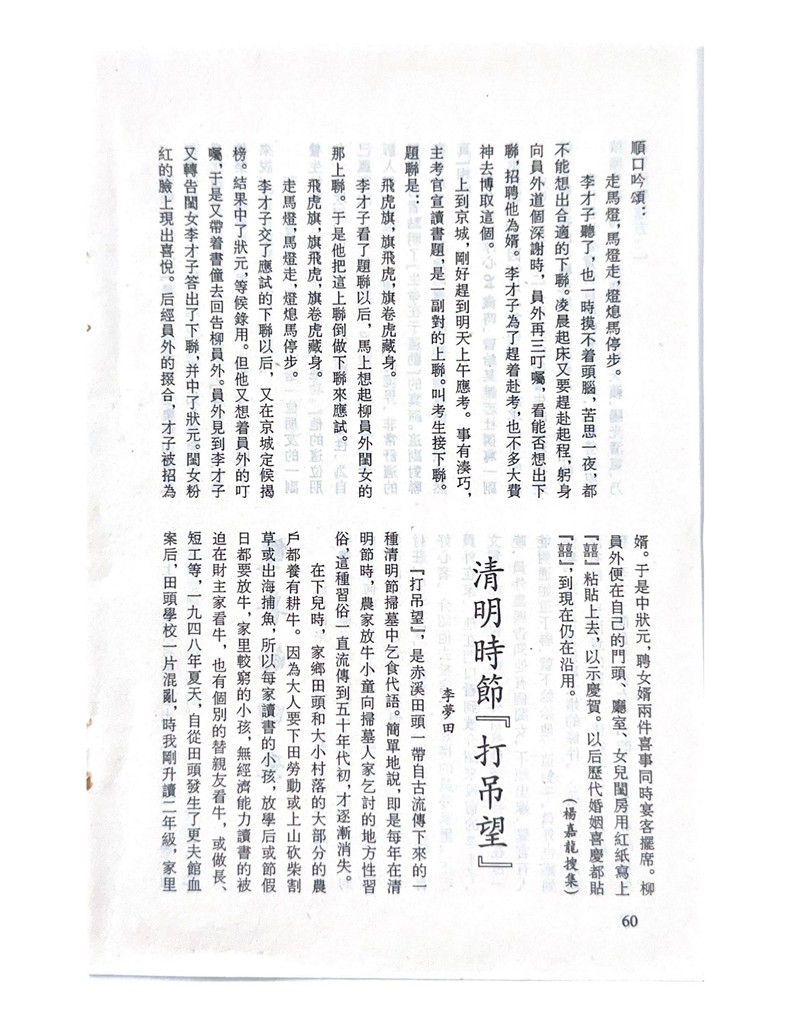 順口吟頌：
走馬燈，馬燈走，燈熄馬停步。
李才子聽了，也一時摸不着頭腦，苦思一夜，都
不能想出合適的下聯。凌晨起床又要趕赴起程，躬身
向員外道個深謝時，員外再三叮囑，看能否想出下
聯，招聘他為婿。李才子為了趕着赴考，也不多大費
神去博取這個。
上到京城，剛好趕到明天上午應考。事有湊巧，
主考官宣讀書題，是一副對的上聯。叫考生接下聯。
題聯是：
飛虎旗，旗飛虎，旗卷虎藏身。
李才子看了題聯以后，馬上想起柳員外閨女的
那上聯。于是他把這上聯倒做下聯來應試。
走馬燈，馬燈走，燈熄馬停步。
李才子交了應試的下聯以后，又在京城定候揭
榜。結果中了狀元，等候錄用。但他又想着員外的叮
囑，于是又帶着書僮去回告柳員外。員外見到李才子
又轉告閨女李才子答出了下聯，并中了狀元。閨女粉
紅的臉上現出喜悅。后經員外的掇合，才子被招為
婿。于是中狀元，聘女婿兩件喜事同時宴客擺席。柳
員外便在自己的門頭、廳室、女兒閨房用紅紙寫上
『囍』粘貼上去，以示慶賀。以后歷代婚姻喜慶都貼
『囍』，到現在仍在沿用。
（楊嘉龍搜集）
清明時節『打吊望』
李夢田
『打吊望』，是赤溪田頭一帶自古流傳下來的一
種清明節掃墓中乞食代語。簡單地說，即是每年在清
明節時，農家放牛小童向掃墓人家乞討的地方性習
俗，這種習俗一直流傳到五十年代初，才逐漸消失。
在下兒時，家鄉田頭和大小村落的大部分的農
戶都養有耕牛。因為大人要下田勞動或上山砍柴割
草或出海捕魚，所以每家讀書的小孩，放學后或節假
日都要放牛，家里較窮的小孩，無經濟能力讀書的被
迫在財主家看牛，也有個別的替親友看牛，或做長、
短工等，一九四八年夏天，自從田頭發生了更夫館血
案后，田頭學校一片混亂，時我剛升讀二年級，家里
60